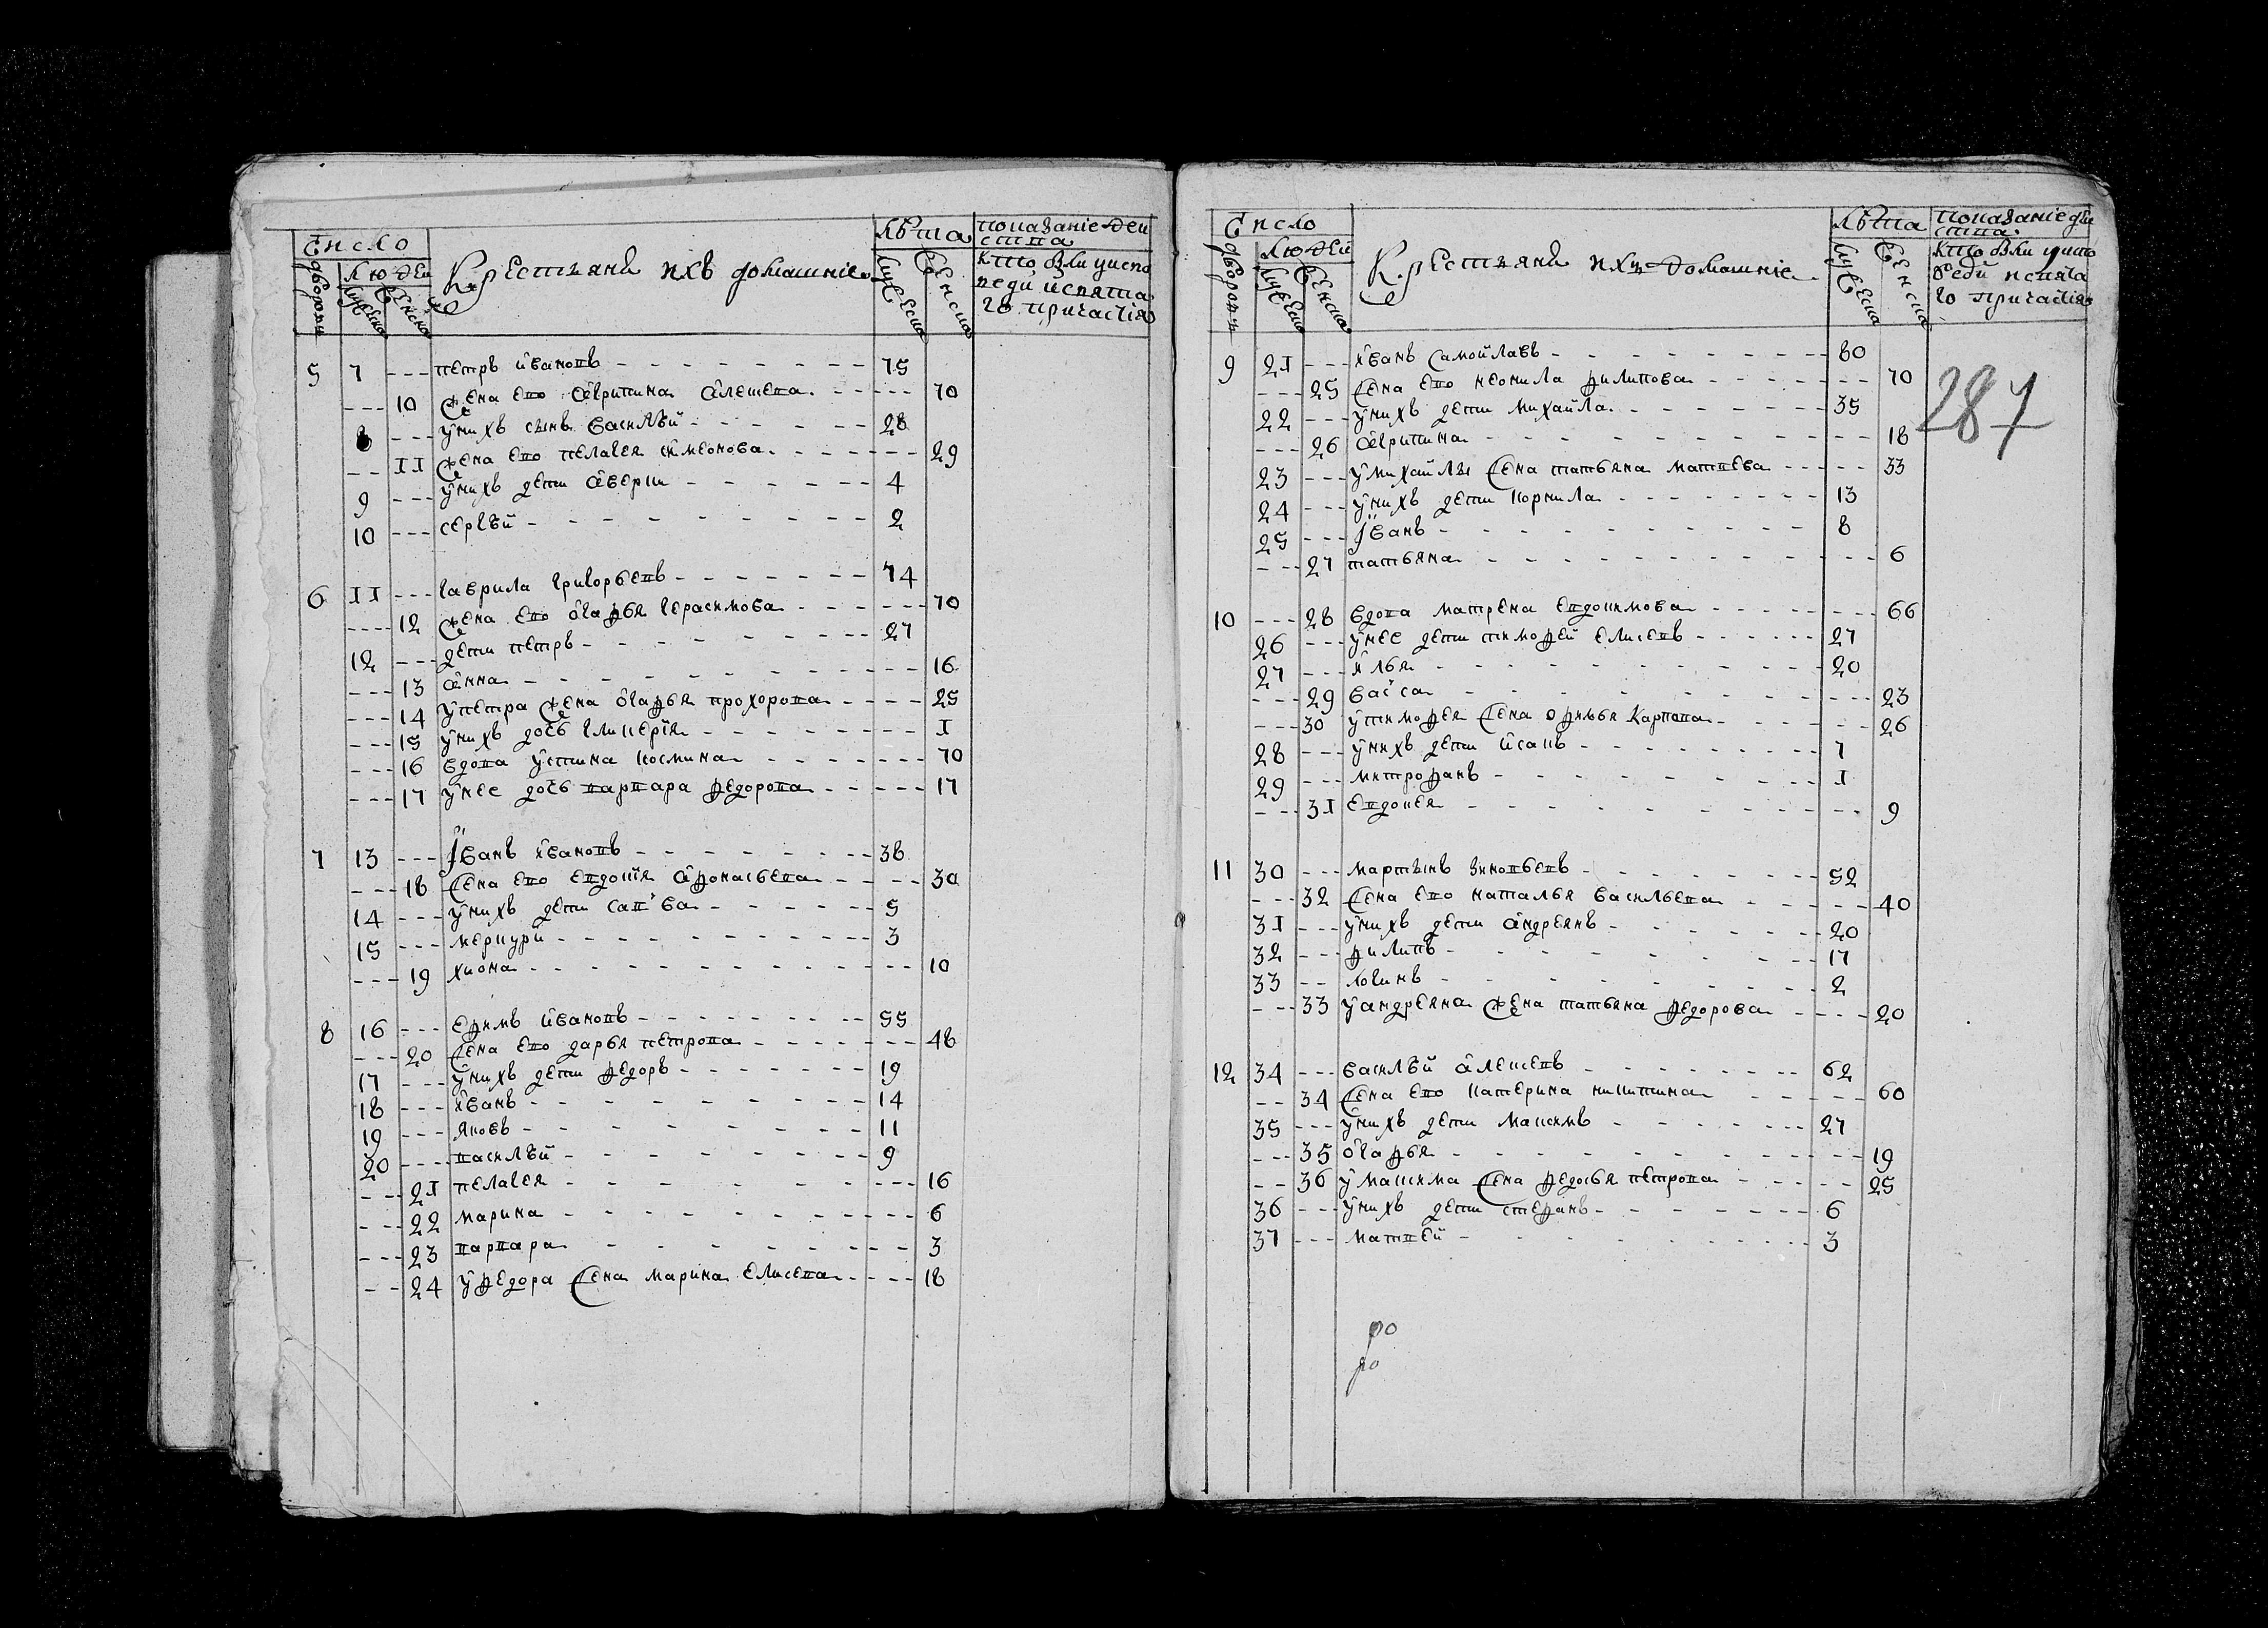 Число
дворовъ
людей
мужеска
женска
Крестьяне и ихъ домашніе
Лѣта
мужеска
женска
показаніе деи
ства
кто былъ у испо
веди и святa
го причастія
5 7 --- петръ ивановъ 75
--- 10 жена ево акѵлина алексеева 70
8 --- у нихъ сынъ василѣй 28
-- 11 жена ево пелагея симеонова 29
9 --- у нихъ дети аверки 4
10 --- сергѣй 2
6 11 --- гаврила григорьевъ 74
---- 12 жена ево агафья герасимова 70
12 --- дети петръ 27
--- 13 анна 16
--- 14 у петра жена агафья прохорова 25
--- 15 у нихъ дочь гликерїя 1
--- 16 вдова устина космина 70
--- 17 у нее дочь варвара федорова 17
7 13 --- іванъ ивановъ 38
--- 18 жена ево евдокїя афонасьева 30
14 --- у нихъ дети савва 5
15 --- меркури 3
--- 19 хиона 10
8 16 --- ефимъ ивановъ 55
--- 20 жена ево дарья петрова 48
17 --- у нихъ дети федоръ 19
18 --- иванъ 14
19 --- яковъ 11
20 --- василѣй 9
-- 21 пелагея 16
-- 22 марина 6
--- 23 варвара 3
-- 24 у федора жена марина елисева 18
Число
дворовъ
людей
мужеска
женска
Крестьяне и ихъ домашніе
Лѣта
мужеска
женска
показаніе дѣи
ства
кто былъ у испо
веди и свята
го причастія
287
9 21 --- иванъ самойлавъ 80
--- 25 жена ево неонила филипова 70
22 --- у нихъ дети михайла 35
--- 26 акѵлина 18
23 --- у михайлы жена татьяна матвѣева 33
24 --- у нихъ дети корнила 13
25 --- іванъ 8
--- 27 татьяна 6
10 --- 28 вдова матрена евдокимова 66
26 --- у нее дети тимофей елисевъ 27
27 --- илья 20
--- 29 васса 23
--- 30 у тимофея жена офимья карпова 26
28 --- у нихъ дети исакъ 7
29 --- митрофанъ 1
--- 31 евдокея 9
11 30 --- мартынъ зиновьевъ 52
--- 32 жена ево наталья васильева 40
31 --- у нихъ дети андреянъ 20
32 --- филипъ 17
33 -- логинъ 2
-- 33 у андреяна жена татьяна федорова 20
12 34 --- василѣй алексевъ 62
-- 34 жена ево катерина никитина 60
35 --- у нихъ дети максимъ 27
--- 35 агафья 19
-- 36 у максима жена федосья петрова 25
36 --- у нихъ дети стефанъ 6
37 --- матвей 3
ро
ро